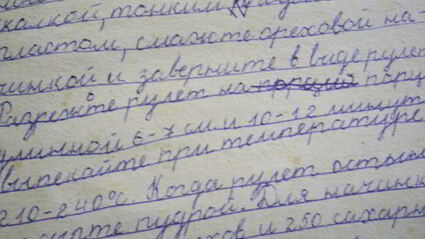 скалкой, тонким
пластом, смажте ореховой на-
чинкой и заверните в виде рулет
Разрежте рулет на порции порц
длинной 6-7 см и 10-12 минут
выпекайте при температуре
210-240°С. Когда рулет остын
пудрой. Для начинк
ов и 250 сахарн